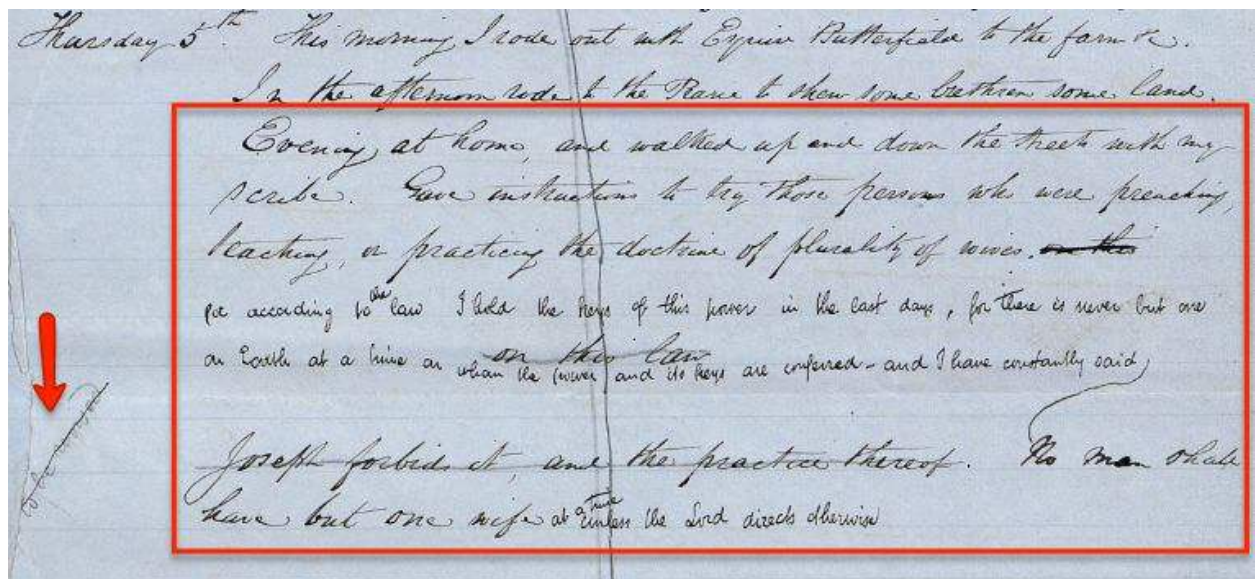 Thursday 5th. This morning I rode out with Esquire Butterfield to the farm &c.
In the afternoon rode to the Prairie to shew some brethren some land.
Evening at home, and walked up and down the streets with my
scribe. Gave instructions to try those persons who were preaching,
teaching, or practicing the doctrine of plurality of wives. on this
for according to the law I hold the keys of this power in the last days, for there is never but one
on Earth at a time on whom the power and its keys are conferred - and I have constantly said
on this law
Joseph forbids it, and the practice thereof. No man shall
have but one wife at a time unless the Lord directs otherwise